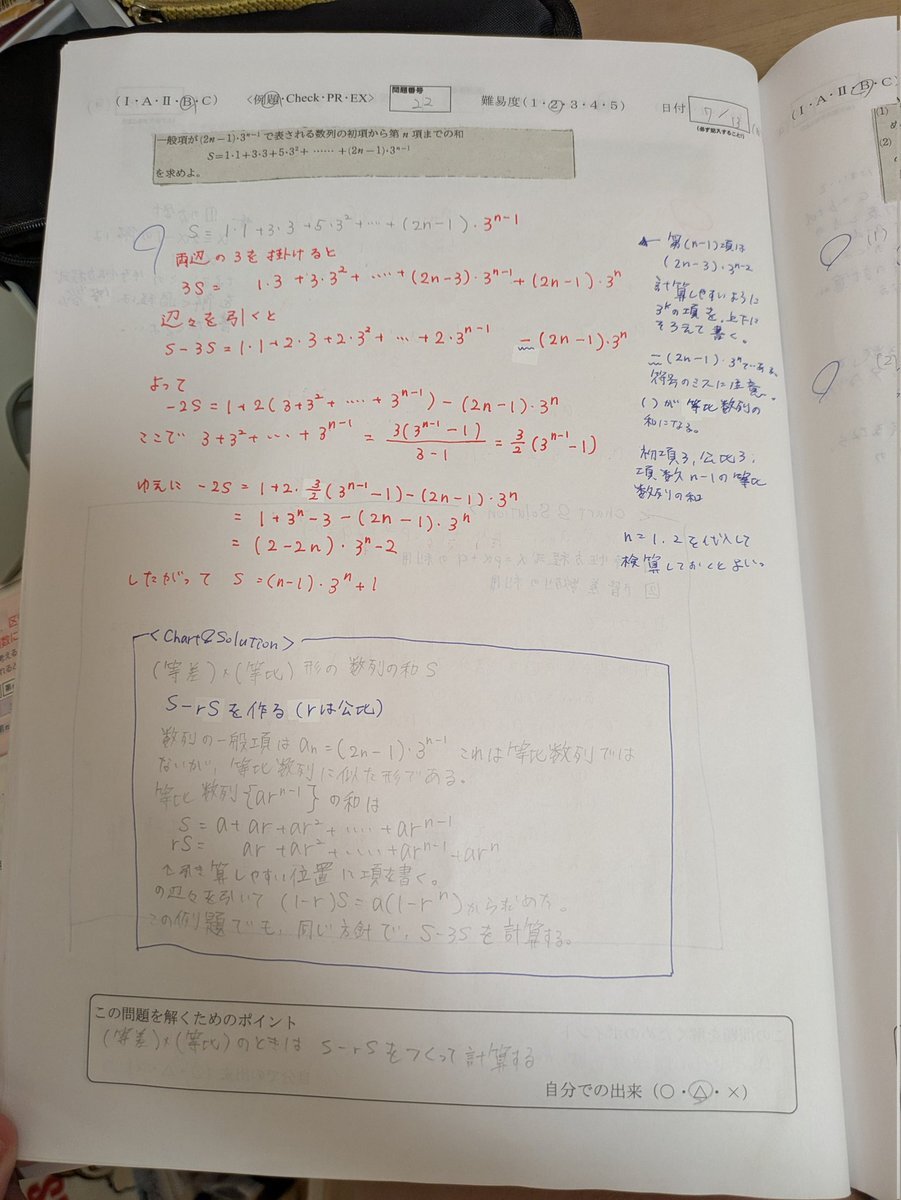 (I・A・II・B・C) <例題・Check・PR・EX> 問題番号 22 難易度(1・2・3・4・5) 日付 7/13
(必ず記入すること!)
一般項が(2n−1)・3ⁿ⁻¹ で表される数列の初項から第 n 項までの和
S=1・1+3・3+5・3²+ …… +(2n−1)・3ⁿ⁻¹
を求めよ。
S=1・1+3・3+5・3²+…+(2n−1)・3ⁿ⁻¹
両辺の3を掛けると
3S= 1・3+3・3²+……+(2n−3)・3ⁿ⁻¹+(2n−1)・3ⁿ
辺々を引くと
S−3S=1・1+2・3+2・3²+…+2・3ⁿ⁻¹ −(2n−1)・3ⁿ
よって
−2S=1+2(3+3²+……+3ⁿ⁻¹)−(2n−1)・3ⁿ
ここで 3+3²+…+3ⁿ⁻¹ = 3(3ⁿ⁻¹−1)/3−1 = 3/2(3ⁿ⁻¹−1)
ゆえに −2S=1+2・3/2(3ⁿ⁻¹−1)−(2n−1)・3ⁿ
=1+3ⁿ−3−(2n−1)・3ⁿ
=(2−2n)・3ⁿ−2
したがって S=(n−1)・3ⁿ+1
← 第(n−1)項は
(2n−3)・3ⁿ⁻²
計算しやすいように
3ᵏの項を、上下に
そろえて書く。
−(2n−1)・3ⁿである。
符号のミスに注意。
( )が等比数列の
和になる。
初項3, 公比3,
項数n−1の等比
数列の和
n=1.2を代入して
検算しておくとよい。
<Chart&Solution>
(等差)×(等比)形の数列の和S
S−rSを作る(rは公比)
数列の一般項はaₙ=(2n−1)・3ⁿ⁻¹ これは等比数列では
ないが、等比数列に似た形である。
等比数列{arⁿ⁻¹}の和は
S=a+ar+ar²+……+arⁿ⁻¹
rS= ar+ar²+……+arⁿ⁻¹+arⁿ
↑引き算しやすい位置に項を書く。
の辺々を引いて (1−r)S=a(1−rⁿ)から求めた。
この例題でも、同じ方針で、S−3Sを計算する。
この問題を解くためのポイント
(等差)×(等比)のときは S−rSをつくって計算する
自分での出来(○・△・×)